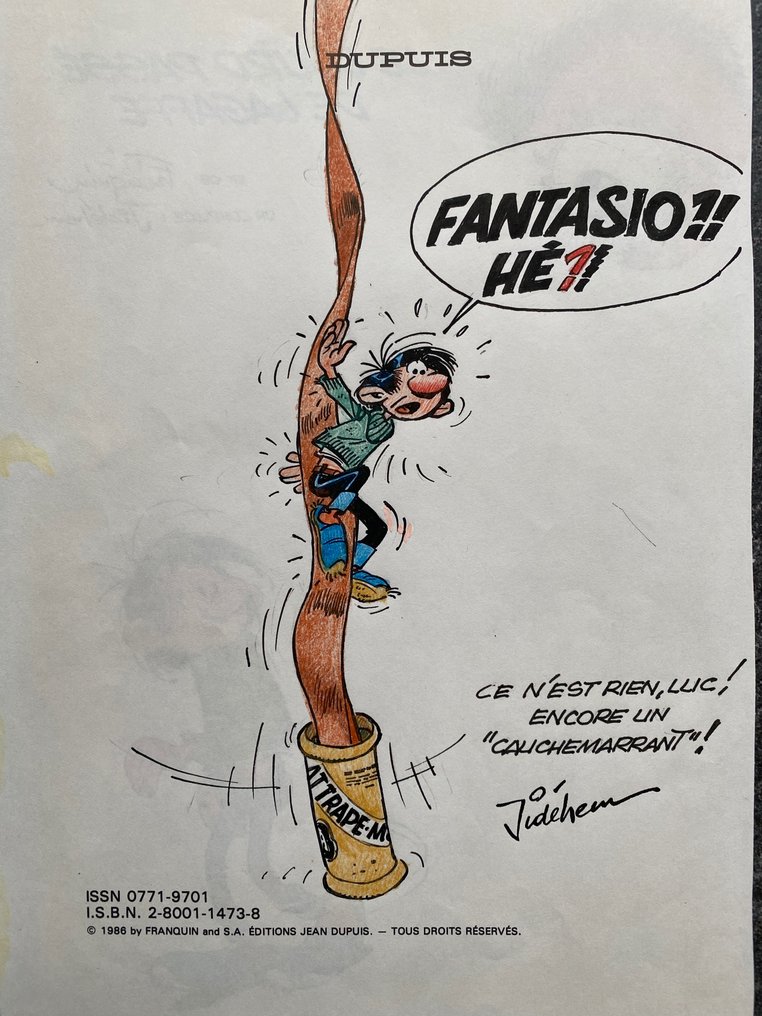 DUPUIS
FANTASIO?!!
HÉ?!!
CE N'EST RIEN, LUC!
ENCORE UN
"CAUCHEMARRANT"!
Jidéhem
ATTRAPE-M
ISSN 0771-9701
I.S.B.N. 2-8001-1473-8
© 1986 by FRANQUIN and S.A. ÉDITIONS JEAN DUPUIS. — TOUS DROITS RÉSERVÉS.